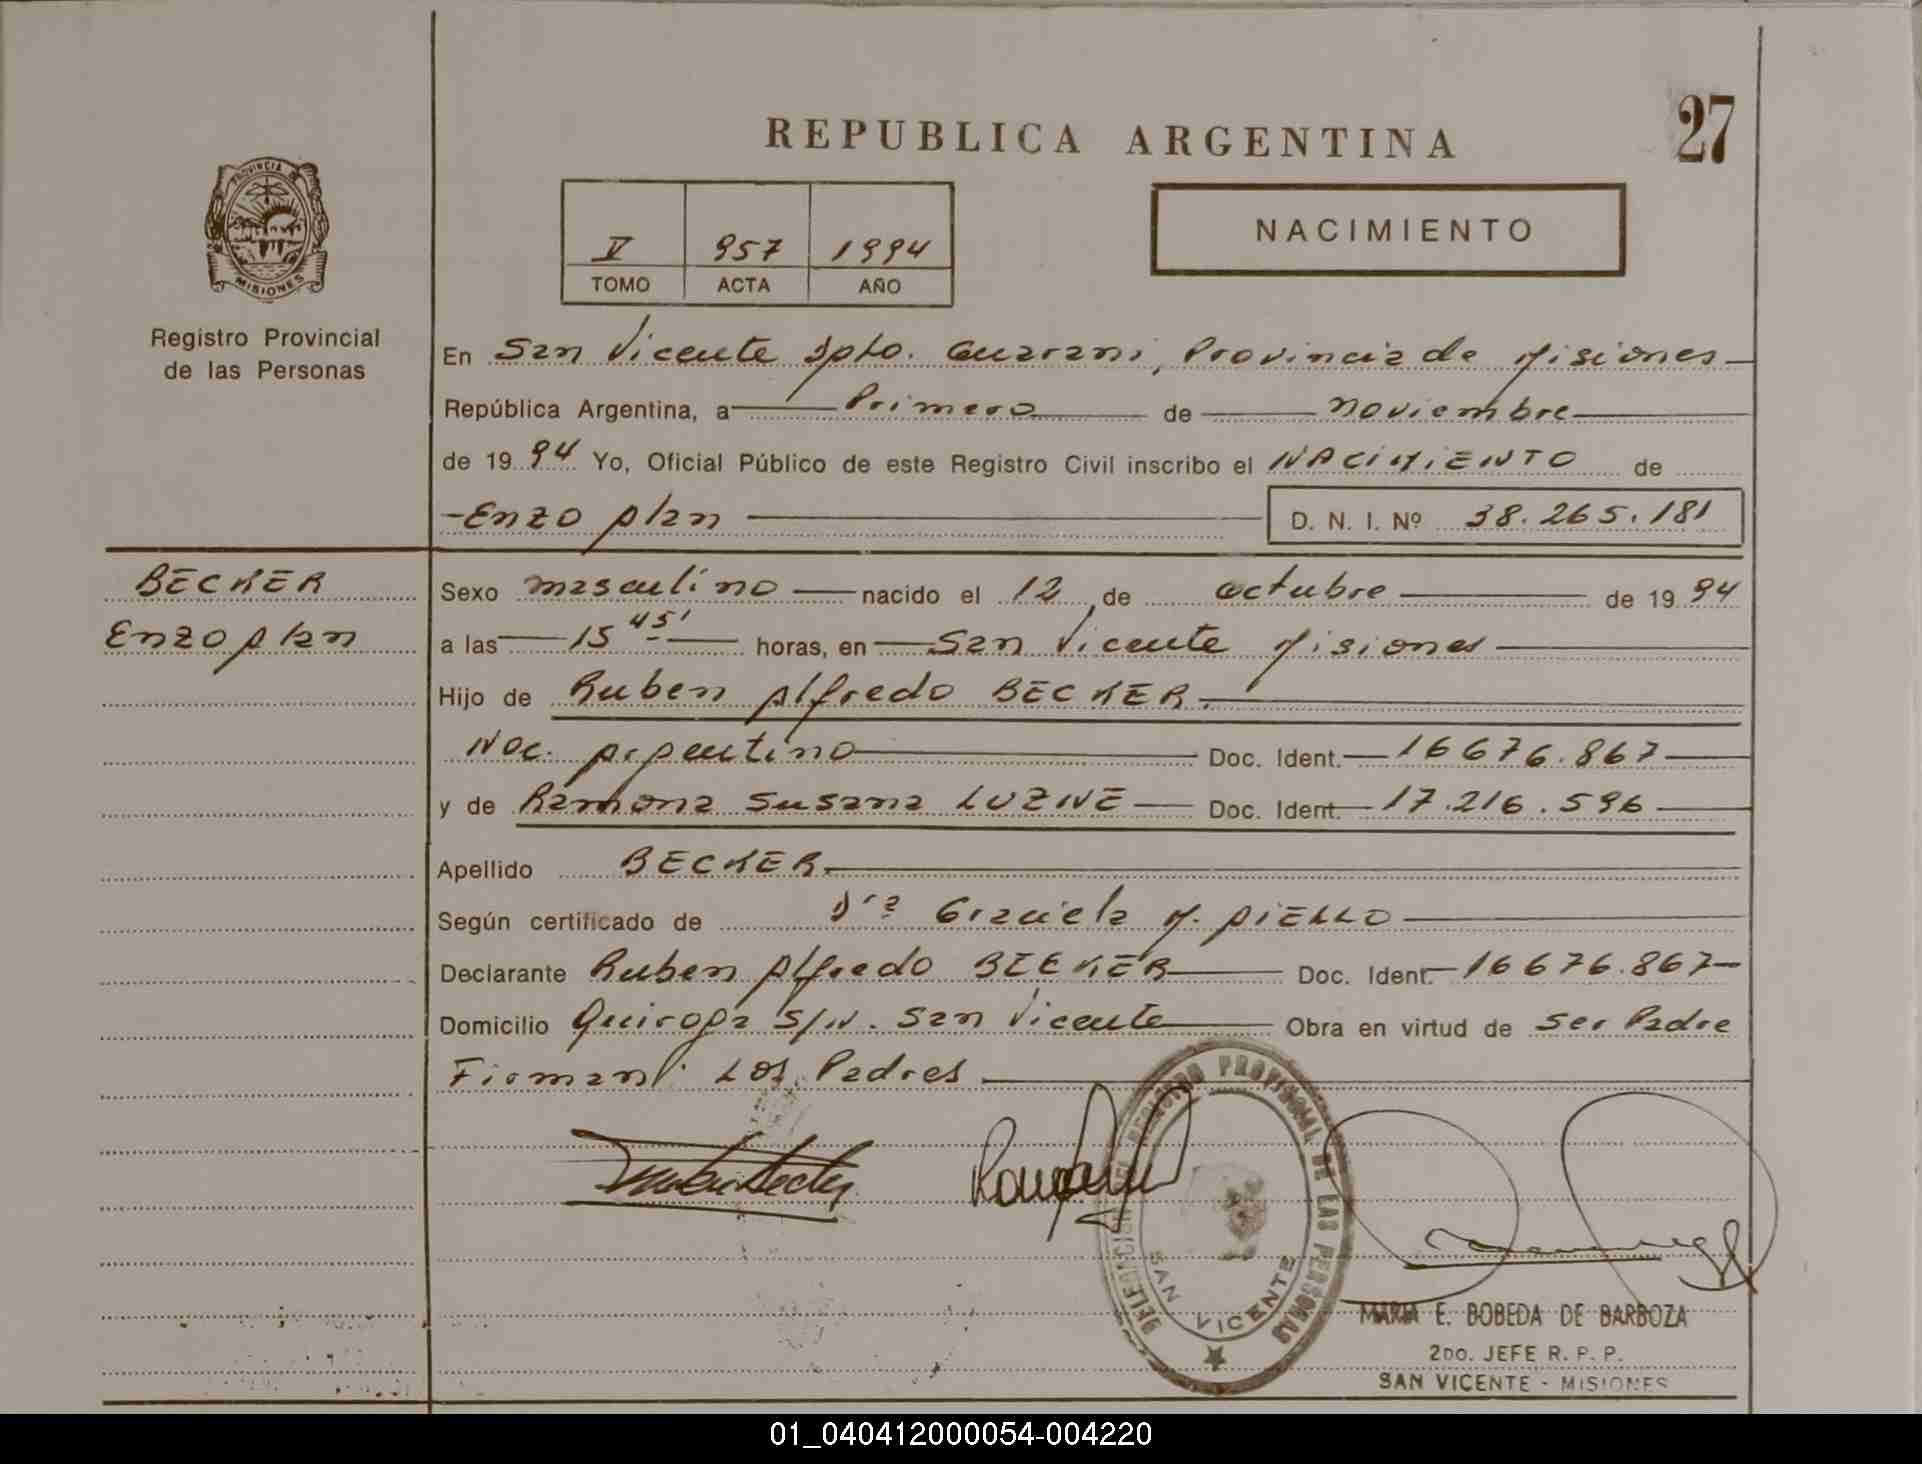 REPUBLICA ARGENTINA
27
PROVINCIA DE
MISIONES
Registro Provincial
de las Personas
V 957 1994
TOMO ACTA AÑO
NACIMIENTO
En San Vicente Dpto. Guarani, Provincia de Misiones
República Argentina, a Primero de noviembre
de 19 94 Yo, Oficial Público de este Registro Civil inscribo el NACIMIENTO de
Enzo Alan D. N. I. Nº 38.265.181
BECKER
Enzo Alan
Sexo masculino nacido el 12 de octubre de 19 94
a las 15 45' horas, en San Vicente Misiones
Hijo de Ruben Alfredo BECKER
Nac. Argentino Doc. Ident. 16676.867
y de Ramona Susana LUZNE Doc. Ident. 17.216.596
Apellido BECKER
Según certificado de Dra Graciela M. AIELLO
Declarante Ruben Alfredo BECKER Doc. Ident. 16676.867
Domicilio Quiroga S/N. San Vicente Obra en virtud de ser Padre
Firman: Los Padres
DELEGACION DEL REGISTRO PROVINCIAL DE LAS PERSONAS
SAN VICENTE
MARIA E. BOBEDA DE BARBOZA
2DO. JEFE R. P. P.
SAN VICENTE - MISIONES
01_040412000054-004220